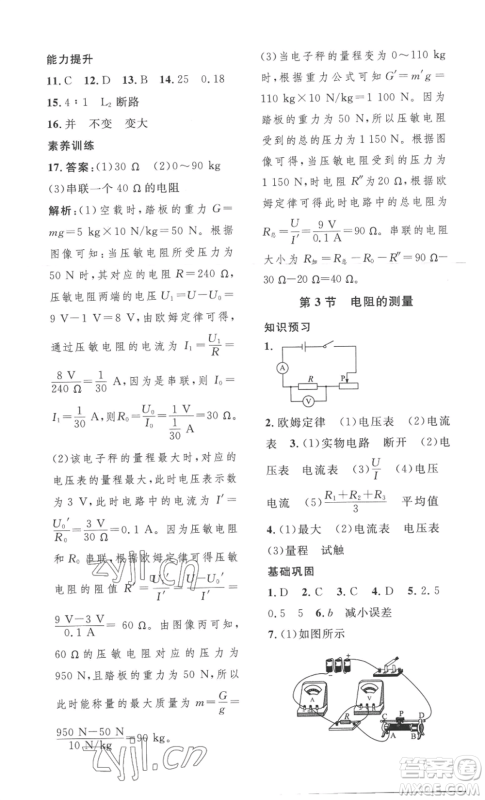 能力提升
11. C 12. D 13. B 14. 25 0.18
15. 4∶1 L₂断路
16. 并 不变 变大
素养训练
17. 答案:(1)30 Ω (2)0～90 kg
(3)串联一个 40 Ω 的电阻
解析:(1)空载时,踏板的重力 G=
mg=5 kg×10 N/kg=50 N,根据
图像可知,当压敏电阻所受压力为
50 N时,其对应的电阻 R=240 Ω,
压敏电阻两端的电压 U₁=U-U₀=
9 V-1 V=8 V,由欧姆定律可知,
通过压敏电阻的电流为 I₁=U₁/R=
8 V/240 Ω=1/30 A,因为是串联,则 I₀=
I₁=1/30 A,R₀=U₀/I₀=1 V/(1/30 A)=30 Ω。
(2)该电子秤的量程最大时,对应电
压表的量程最大,此时电压表的示数
为3 V,此时电路中的电流 I′=
U₀′/R₀=3 V/30 Ω=0.1 A,因为压敏电阻
和 R₀ 串联,根据欧姆定律可得,此时
压敏电阻 R′=U₁′/I′=(U-U₀′)/I′=
(9 V-3 V)/0.1 A=60 Ω,由图像可知,此时
60 Ω 的电阻对应的压力为
950 N,踏板的重力为 50 N,则此
时此能称量的最大质量为 m=G/g=
(950 N-50 N)/(10 N/kg)=90 kg。
(3)当电子秤的量程变为 0～110
kg 时,根据重力公式可知 G′=
m′g=110 kg×10 N/kg=1 100 N,
踏板的重力为 50 N,则压敏电阻
受到的总的压力为 1 100 N+50 N=
1 150 N,所以压敏电阻受到的力是
1 150 N 时,电阻 R″为 20 Ω,根据欧
姆定律可得,此时电路中的总电阻为
R总=U/I′=9 V/0.1 A=90 Ω。串联的电阻
大小为 R加=R总-R₀-R″=90 Ω-
30 Ω-20 Ω=40 Ω。
第3节 电阻的测量
知识预习
1.
A R P V
2. 欧姆定律 (1)电压表 (2)电流
表 3. (1)实物电路 断开 (2)电
压表 电流表 (3)U/I 电压
电流 (5)(R₁+R₂+R₃)/3 平均值
4. (1)最大 电流表 电压表
(3)量程 试触
基础巩固
1. D 2. C 3. C 4. D 5. 2.5
0.5 5 6. b 减小误差
7. (1)如图所示
A V R C P D A B
zyjl.cn
zyjl.cn
答案圈
MXQE.COM